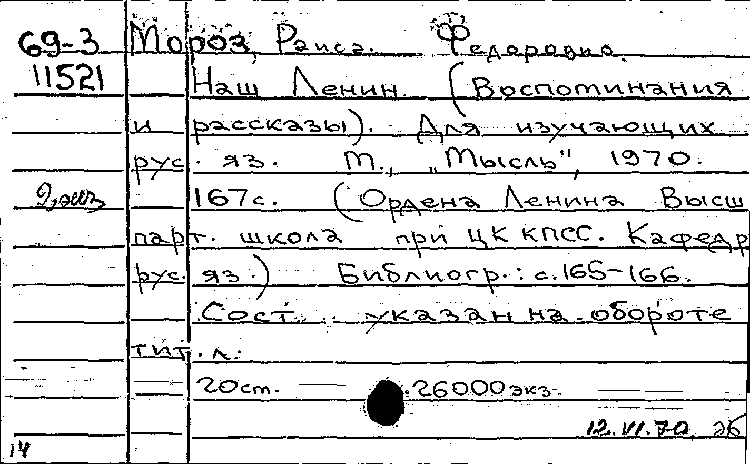 69-3 Мороз, Раиса Федоровна.
11521 Наш Ленин (Воспоминания
и рассказы). Для изучающих
рус. яз. М., „Мысль", 1970.
2 экз 167с. (Ордена Ленина Высш
парт. школа при ЦК КПСС. Кафедр
рус. яз.) Библиогр.: с.165-166.
Сост. указан на обороте
тит. л.
20см. 26000экз.
12.VI.70.
14